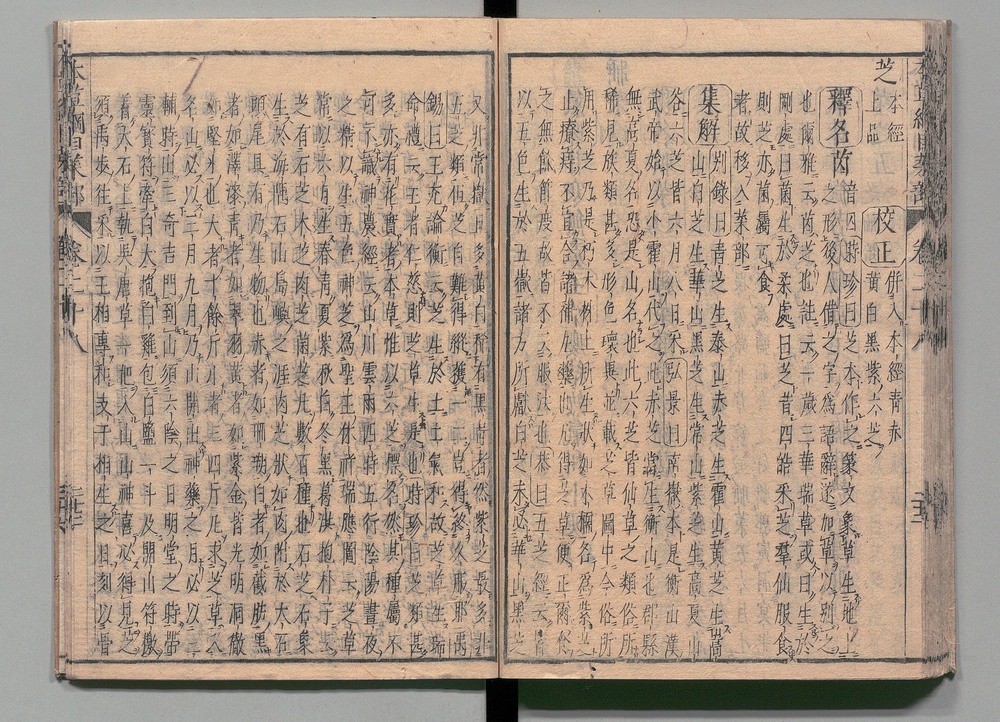 芝 本經上品 校正 併入本經青赤黃白黑紫六芝
釋名 茵 音囚時珍曰芝本作之篆文象草生地上
之形後人借之字爲語辭遂加草以別之
也爾雅云茵芝也註云一歲三華瑞草或曰生於
剛處曰菌生於柔處曰芝昔四皓采芝羣仙服食
則芝亦菌屬可食
者故移入菜部
集解 別錄曰青芝生泰山赤芝生霍山黃芝生嵩
山白芝生華山黑芝生常山紫芝生高夏山
谷六芝皆六月八月采弘景曰南嶽本是衡山漢
武帝始以小霍山代之此赤芝當生衡山也郡縣
無高夏名恐是山名也此六芝皆仙草之類俗所
稀見族類甚多形色瓌異並載芝草圖中今俗所
用紫芝乃是朽木株上所生狀如木檽名爲紫芝
止療痔不宜合諸補丸藥也凡得芝草便正爾食
之無餘節度故皆不云服法也恭曰五芝經云皆
以五色生於五嶽諸方所獻白芝未必華山黑芝
又非常嶽且多黃白稀有黑青者然紫芝最多非
五芝類但芝自難得縱獲一二豈得終久服耶禹
錫曰王充論衡云芝生於土土氣和故芝草生瑞
命禮云王者仁慈則芝草生是也時珍曰芝類甚
多亦有花實者本草惟以六芝標名然其種屬不
可不識神農經云山川雲雨四時五行陰陽晝夜
之精以生五色神芝爲聖王休祥瑞應圖云芝草
常以六月生春青夏紫秋白冬黑葛洪抱朴子云
芝有石芝木芝肉芝菌芝凡數百種也石芝石象
生於海隅石山島嶼之涯肉芝狀如肉附於大石
頭尾具有乃生物也赤者如珊瑚白者如截肪黑
者如澤漆青者如翠羽黃者如紫金皆光明洞徹
如堅冰也大者十餘斤小者三四斤凡求芝草入
名山必以三月九月乃山開出神藥之月必以三
輔時出三奇吉門到山須六陰之日明堂之時帶
靈寶符牽白犬抱白雞包白鹽一斗及開山符檄
着大石上執吳唐草一把入山山神喜必得見芝
須禹步往采以王相專和支干相生之日刻以骨